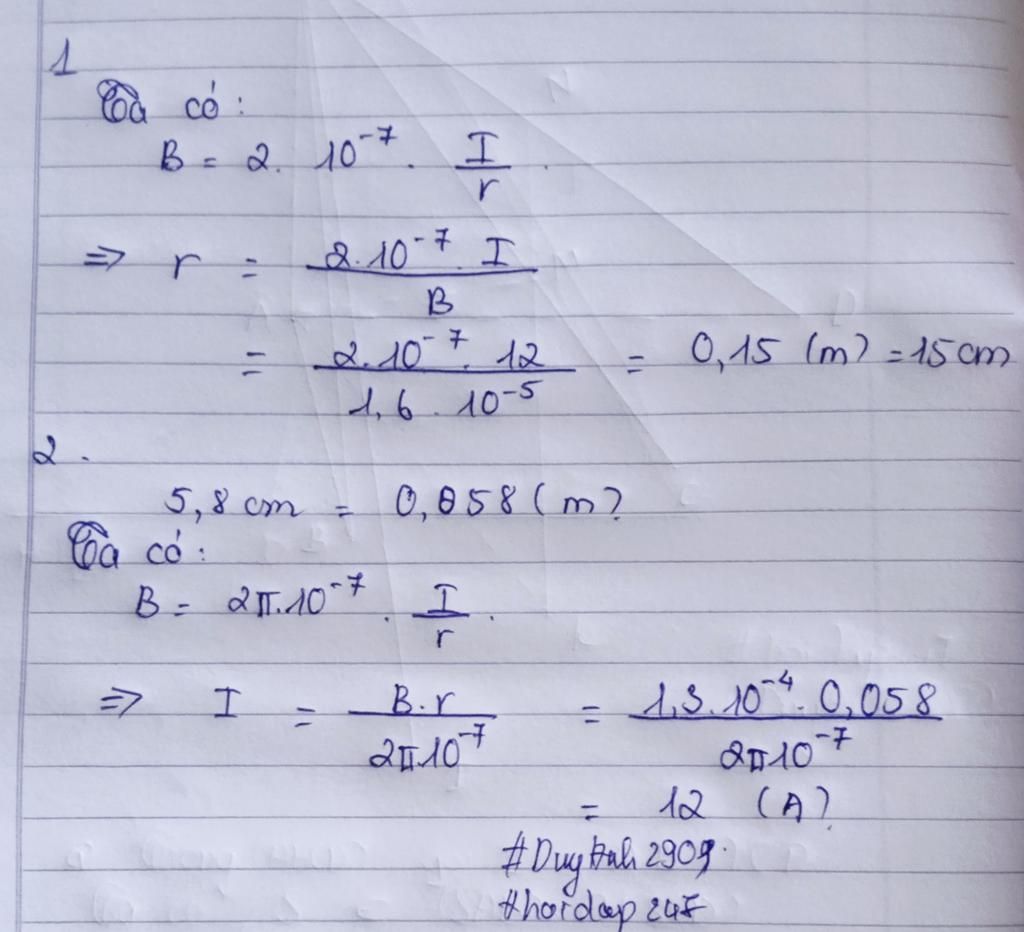 1
Ta có:
B = 2. 10⁻⁷ . I/r .
=> r = 2.10⁻⁷. I / B
= 2.10⁻⁷. 12 / 1,6 . 10⁻⁵ = 0,15 (m) = 15 cm
2.
5,8 cm = 0,058 (m)
Ta có:
B = 2π.10⁻⁷ . I/r .
=> I = B.r / 2π10⁻⁷ = 1,3.10⁻⁴. 0,058 / 2π10⁻⁷
= 12 (A)
#Duy 2909.
#hoidap247